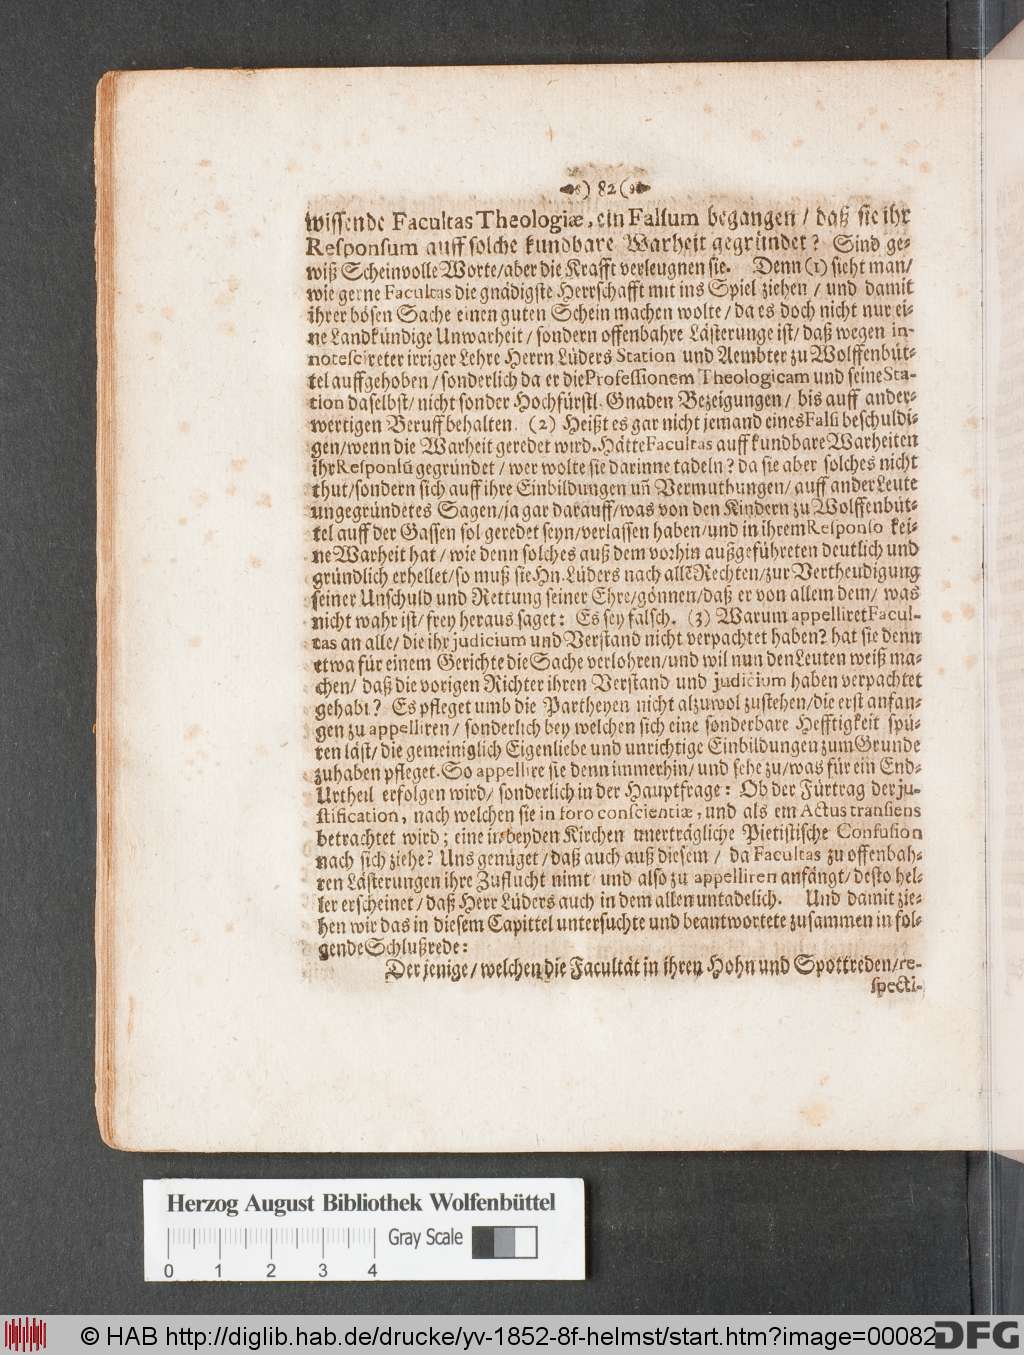 ) 82 (
wissende Facultas Theologiæ, ein Falsum begangen / daß sie ihr
Responsum auff solche kundbare Warheit gegründet? Sind ge-
wiß Scheinvolle Worte/aber die Krafft verleugnen sie. Denn (1) sieht man/
wie gerne Facultas die gnädigste Herrschafft mit ins Spiel ziehen / und damit
ihrer bösen Sache einen guten Schein machen wolte / da es doch nicht nur ei-
ne Landkündige Unwarheit / sondern offenbahre Lästerunge ist / daß wegen in-
notescireter irriger Lehre Herrn Lüders Station und Aembter zu Wolffenbüt-
tel auffgehoben / sonderlich da er die Professionem Theologicam und seine Sta-
tion daselbst / nicht sonder Hochfürstl. Gnaden Bezeigungen / bis auff ander-
wertigen Beruff behalten. (2) Heißt es gar nicht jemand eines Falsi beschuldi-
gen/wenn die Warheit geredet wird. Hätte Facultas auff kundbare Warheiten
ihr Responsũ gegründet / wer wolte sie darinne tadeln? da sie aber solches nicht
thut/sondern sich auff ihre Einbildungen uñ Vermuthungen/ auff ander Leute
ungegründetes Sagen/ja gar darauff/was von den Kindern zu Wolffenbüt-
tel auff der Gassen sol geredet seyn/verlassen haben/und in ihrem Responso kei-
ne Warheit hat / wie denn solches auß dem vorhin außgeführeten deutlich und
gründlich erhellet/so muß sie Hn. Lüders nach allẽ Rechten/zur Vertheudigung
seiner Unschuld und Rettung seiner Ehre/gönnen/daß er von allem dem/ was
nicht wahr ist/ frey heraus saget: Es sey falsch. (3) Warum appelliret Facul-
tas an alle/ die ihr judicium und Verstand nicht verpachtet haben? hat sie denn
etwa für einem Gerichte die Sache verlohren/und wil nun den Leuten weiß ma-
chen/ daß die vorigen Richter ihren Verstand und judicium haben verpachtet
gehabt? Es pfleget umb die Partheyen nicht alzuwol zustehen/die erst anfan-
gen zu appelliren / sonderlich bey welchen sich eine sonderbare Hefftigkeit spü-
ren läst/ die gemeiniglich Eigenliebe und unrichtige Einbildungen zum Grunde
zuhaben pfleget. So appellire sie denn immerhin/ und sehe zu/was für ein End-
Urtheil erfolgen wird/ sonderlich in der Hauptfrage: Ob der Fürtrag der ju-
stification, nach welchen sie in foro conscientiæ, und als ein Actus transiens
betrachtet wird; eine in beyden Kirchen unerträgliche Pietistische Confusion
nach sich ziehe? Uns genüget / daß auch auß diesem / da Facultas zu offenbah-
ren Lästerungen ihre Zuflucht nimt und also zu appelliren anfängt/ desto hel-
ler erscheinet / daß Herr Lüders auch in dem allen untadelich. Und damit zie-
hen wir das in diesem Capittel untersuchte und beantwortete zusammen in fol-
gende Schlußrede:
Der jenige / welchen die Facultät in ihren Hohn und Spottreden/re-
specti-
Herzog August Bibliothek Wolfenbüttel
Gray Scale
0 1 2 3 4
© HAB http://diglib.hab.de/drucke/yv-1852-8f-helmst/start.htm?image=00082
DFG